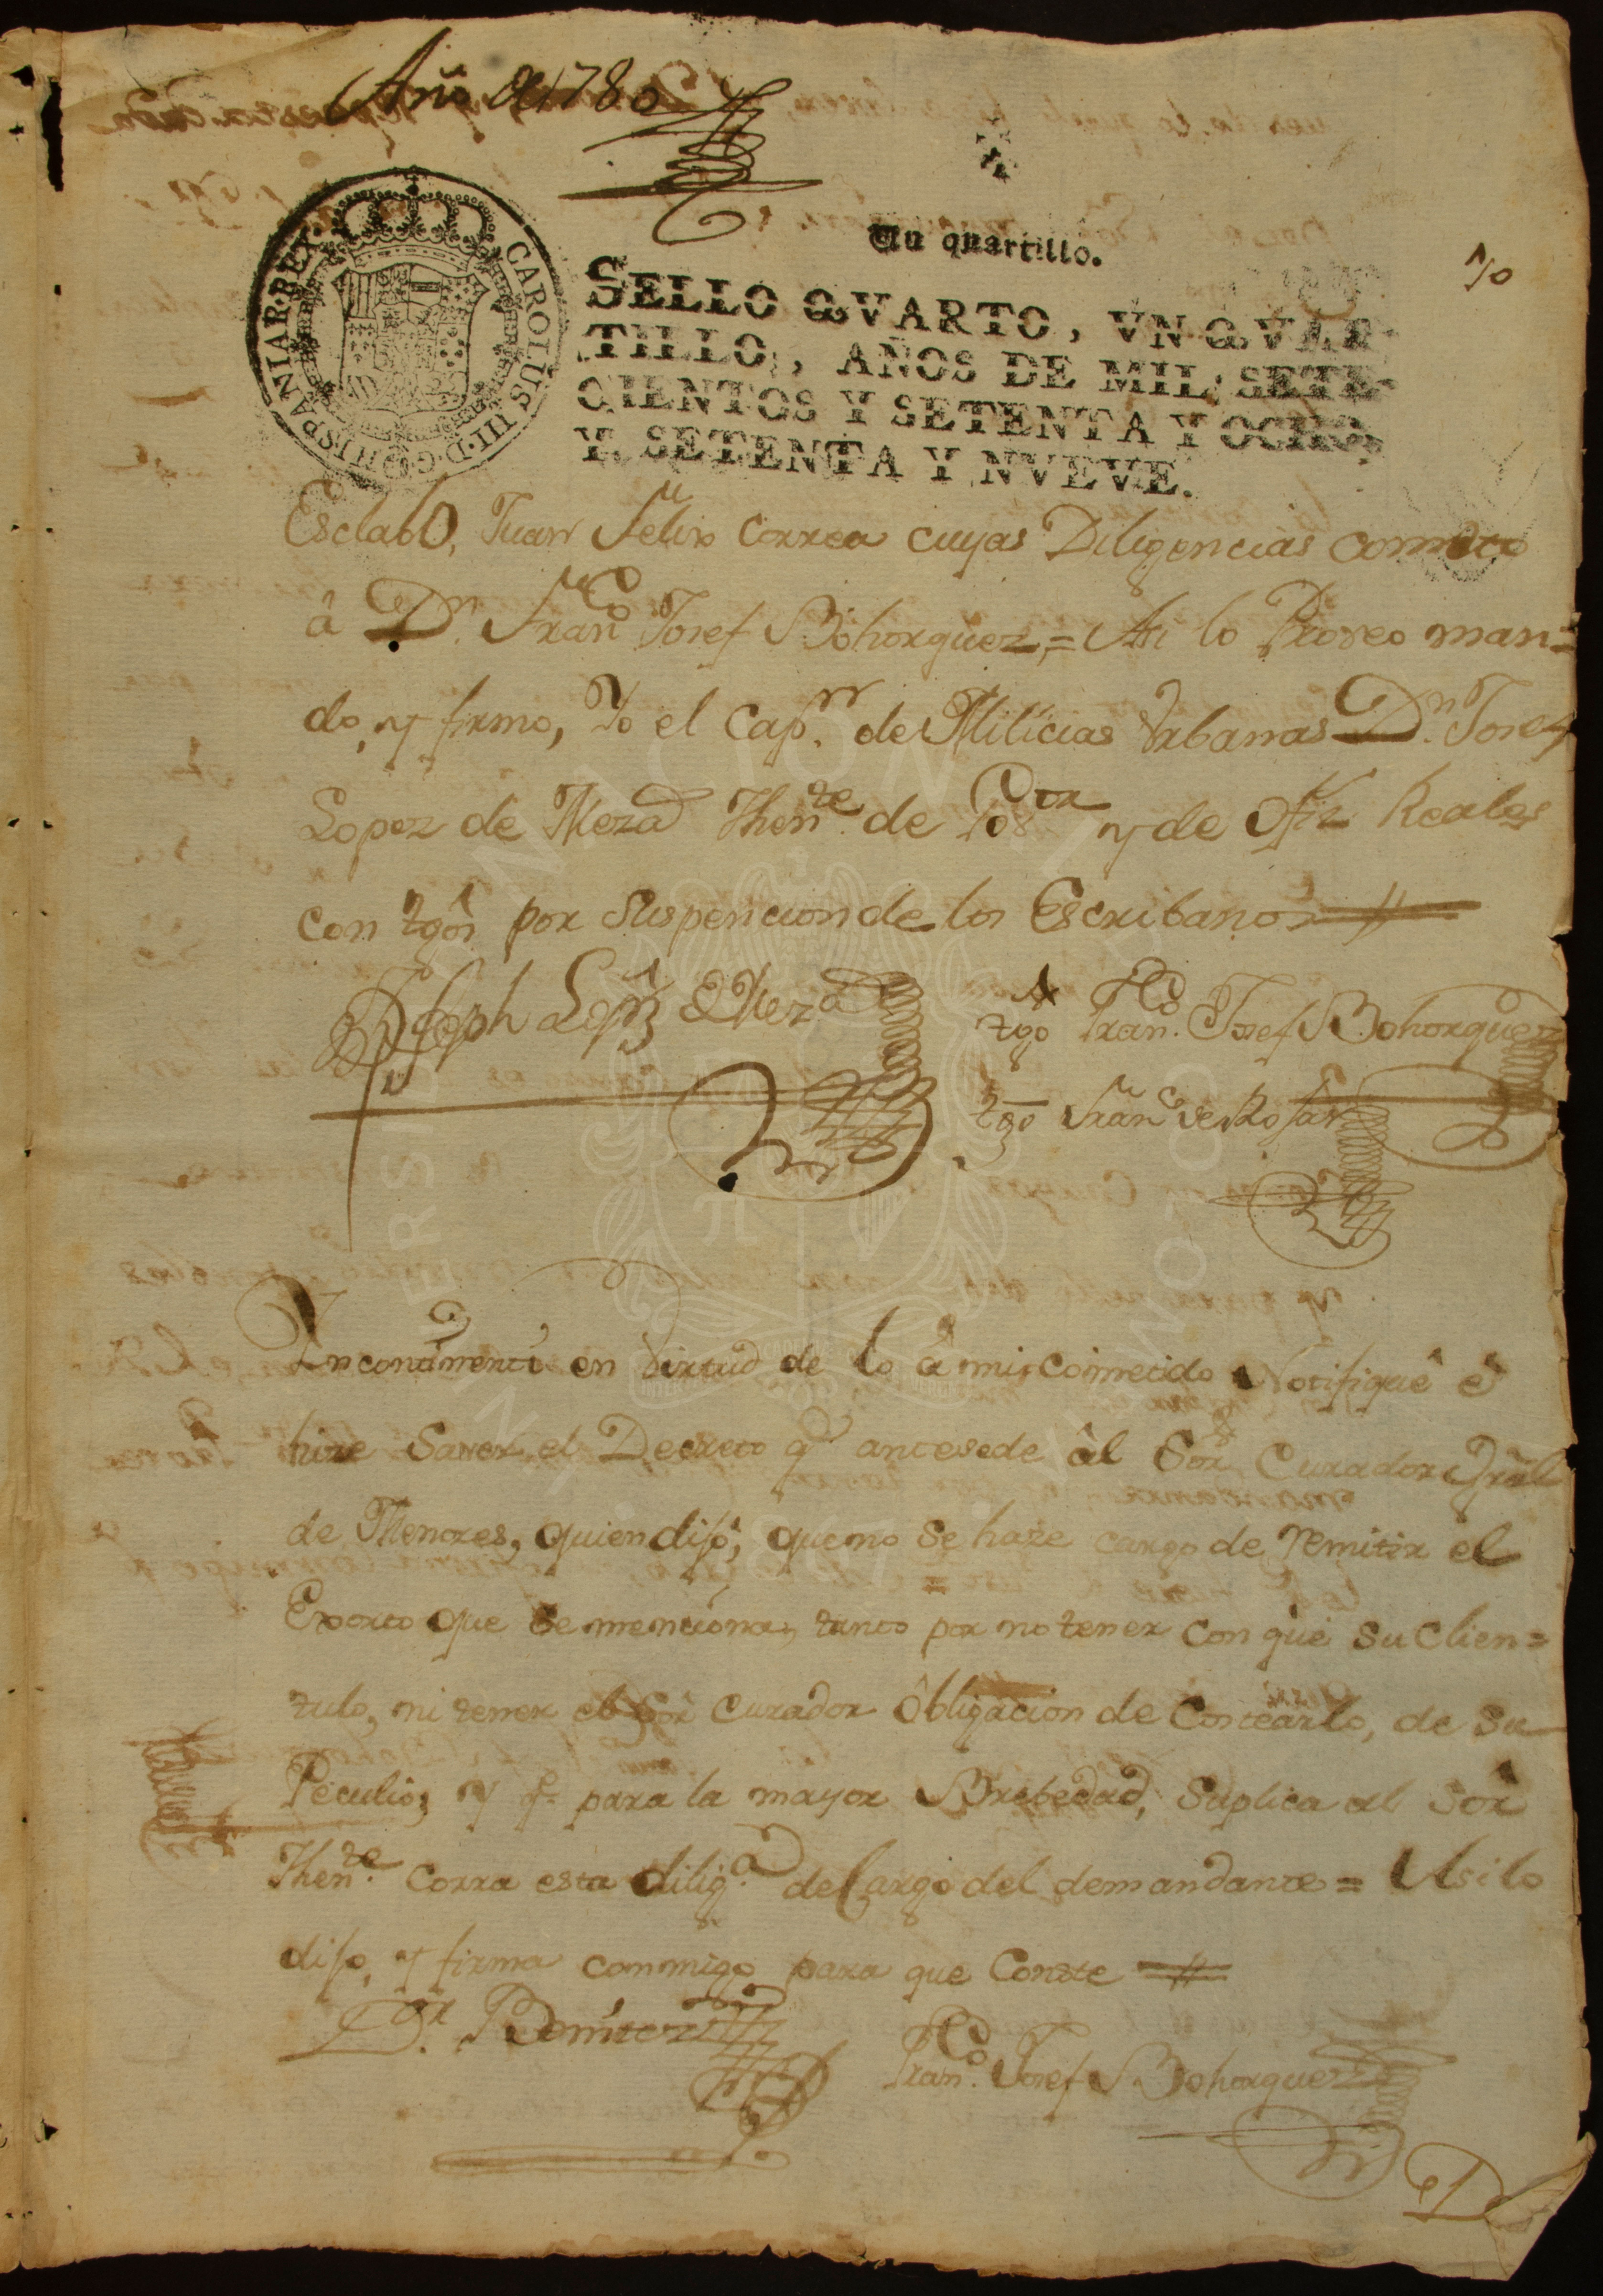 Año de 1780
Un quartillo.
SELLO QVARTO, VN QVAR-
TILLO, AÑOS DE MIL SETE-
CIENTOS Y SETENTA Y OCHO,
Y SETENTA Y NVEVE.
CAROLUS III D G HISPANIAR REX
Esclabo, Juan Felix Correa cuyas Diligencias cometo
â Dn. Franco Josef Bohorquez,= Asi lo Proveo man=
do, y firmo, Yo el Capn. de Milicias Vrbanas Dn. Josef
Lopez de Meza Thente. de Gor y de Ofiz Reales
con tgos por suspencion de los Escribanos
Joseph Lopz de Meza
tgo Franco. Josef Bohorquez
tgo Franco de
Yncontinenti en virtud de lo â mi, cometido Notifiquê ê
hize Saver el Decreto qe antesede âl Sor Curador Gral
de Menores, quien dijô, que no se haze cargo de remitir el
Exorto que se menciona, tanto por no tener con que su clien=
tulo, ni tener el Sor Curador Obligacion de Costearlo, de su
Peculio; y qe. para la mayor Brebedad, Suplica al Sor
Thente. corra esta diliga. del cargo del demandante = Asi lo
dijo, y firma conmigo para que Conste
Dor. Benitez
Franco. Josef Bohorquez